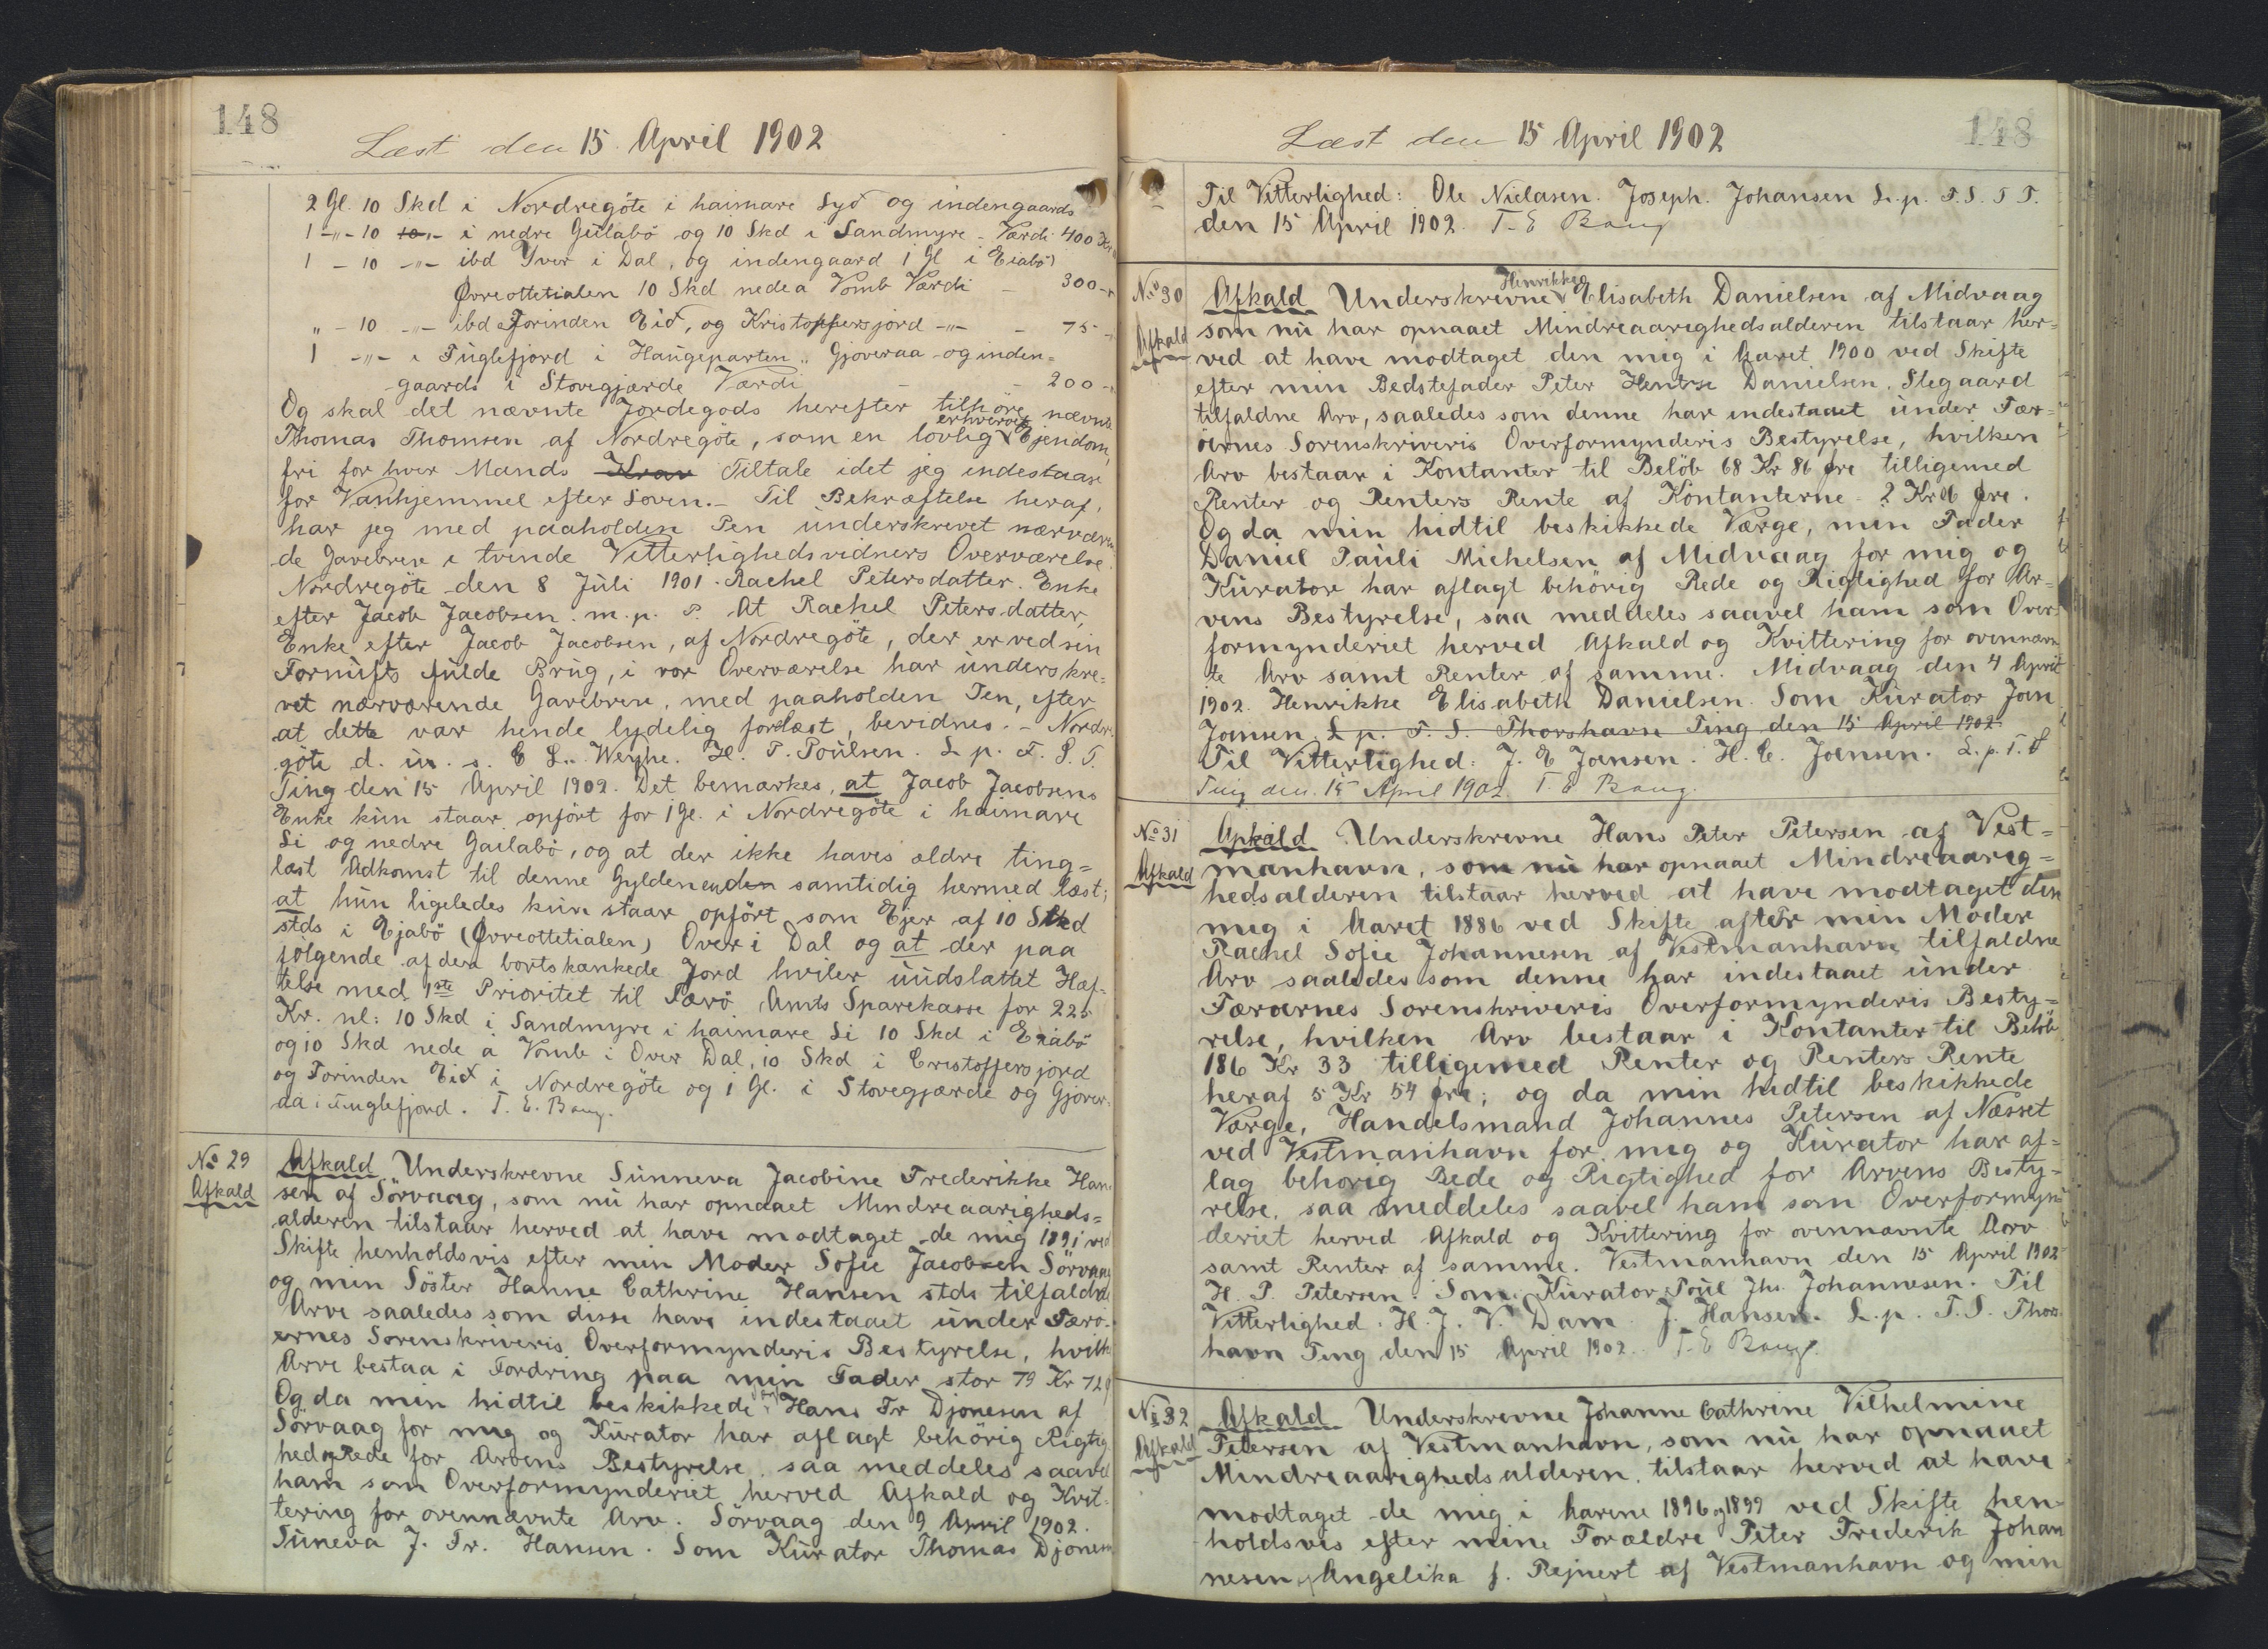 148
Læst den 15. April 1902
2 Gl. 10 Skd i Nordregöte i haimare Syd og indengaards
1 -"- 10 10 -"- i nedre Gülabö og 10 Skd i Sandmyre - Værdi 400 Kr
1 - 10 -"- ibd Yver i Dal, og indengaard 1 Gl i Eiabö
Øvreottetialen 10 Skd nede a Vomb Værdi - 300 -
" - 10 -"- ibd Forinden Eid, og Kristoffersjord -"- - 75 -
1 -"- i Fuglefjord i Haugeparten " Gjoveraa og inden=
gaards i Stovegjærde Værdi - - 200 -
Og skal det nævnte Jordegods herefter tilhöre nævnte
Thomas Thomsen af Nordregöte, som en lovlig erhvervet Ejendom,
fri for hver Mands Krav Tiltale idet jeg indestaar
for Vanhjemmel efter Loven. - Til Bekræftelse heraf,
har jeg med paaholden Pen underskrevet nærværen
de Gavebrev i tvende Vitterlighedsvidners Overværelse.
Nordregöte den 8 Juli 1901. Rachel Petersdatter. Enke
efter Jacob Jacobsen. m. p. P. At Rachel Petersdatter,
Enke efter Jacob Jacobsen, af Nordregöte, der er ved sin
Fornufts fulde Brug, i vor Overværelse har underskre=
vet nærværende Gavebrev, med paaholden Pen, efter
at dette var hende lydelig forelæst, bevidnes. - Nordre
göte d. u. s. E L. Weyhe. H. P. Poulsen. L. p. F. S. T.
Ting den 15 April 1902. Det bemærkes, at Jacob Jacobsens
Enke kun staar opfört for 1 Gl. i Nordregöte i haimare
Li og nedre Gailabö, og at der ikke haves ældre ting=
læst Adkomst til denne Gylden enden samtidig hermed læst;
at hun ligeledes kun staar opfört som Ejer af 10 Skd
stds i Ejabö (Øvreottetialen) Over i Dal og at der paa
følgende af den bortskænkede Jord hviler uudslættet Hæf=
telse med 1ste Prioritet til Færö Amts Sparekasse for 225
Kr. nl: 10 Skd i Sandmyre i haimare Li 10 Skd i Eiabö
og 10 Skd nede a Vomb i Over Dal, 10 Skd i Cristoffersjord
og Forinden Eid i Nordregöte og 1 Gl. i Stovegjærde og Gjover=
aa i Fuglefjord. T. E. Bang.
No 29
Afkald
Afkald Underskrevne Sunneva Jacobine Frederikke Han
sen af Sörvaag, som nu har opnaaet Mindreaarigheds=
alderen tilstaar herved at have modtaget de mig 1891 ved
Skifte henholdsvis efter min Moder Sofie Jacobsen Sörvaag
og min Söster Hanne Cathrine Hansen stds tilfaldne
Arve saaledes som disse have indestaaet under Færö=
ernes Sorenskriveris Overformynderis Bestyrelse, hvilke
Arve bestaa i Fordring paa min Fader stor 79 Kr 72
Og da min hidtil beskikkede Hans Fr Djonesen af
Sörvaag for mig og Kurator har aflagt behörig Rigtig
hed og Rede for Arvens Bestyrelse, saa meddeles saavel
ham som Overformynderiet herved Afkald og Kvit=
tering for ovennævnte Arv. Sörvaag den 9 April 1902.
Suneva J. Fr. Hansen. Som Kurator Thomas Djonesen
Læst den 15 April 1902
148
Til Vitterlighed: Ole Nielasen. Joseph. Johansen L. p. F. S. T T.
den 15 April 1902. T. E Bang
No 30
Afkald
Afkald Underskrevne Henrikke Elisabeth Danielsen af Midvaag
som nu har opnaaet Mindreaarighedsalderen tilstaar her=
ved at have modtaget den mig i Aaret 1900 ved Skifte
efter min Bedstefader Peter Danielsen, Stegaard
tilfaldne Arv, saaledes som denne har indestaaet under Fær=
öernes Sorenskriveris Overformynderis Bestyrelse, hvilken
Arv bestaar i Kontanter til Belöb 68 Kr 86 Øre tilligemed
Renter og Renters Rente af Kontanterne 2 Kr Øre.
Og da min hidtil beskikkede Værge, min Fader
Daniel Pauli Michelsen af Midvaag for mig og
Kurator har aflagt behörig Rede og Rigtighed for Ar=
vens Bestyrelse, saa meddeles saavel ham som Over=
formynderiet herved Afkald og Kvittering for ovennævn
te Arv samt Renter af samme. Midvaag den 4 April
1902. Henrikke Elisabeth Danielsen. Som Kurator Joen
Joensen. L p. F. S. Thorshavn Ting den 15 April 1902.
Til Vitterlighed: J. E Joensen. H. E. Joensen. L. p. F. S
Ting den 15 April 1902. T. E Bang.
No 31
Afkald
Afkald Underskrevne Hans Peter Petersen af Vest=
manhavn, som nu har opnaaet Mindreaarig=
hedsalderen tilstaar herved at have modtaget den
mig i Aaret 1886 ved Skifte after min Moder
Rachel Sofie Johannesen af Vestmanhavn tilfaldne
Arv saaledes som denne har indestaaet under
Færoernes Sorenskriveris Overformynderis Besty=
relse, hvilken Arv bestaar i Kontanter til Belöb
186 Kr 33 tilligemed Renter og Renters Rente
heraf 5 Kr 54 Øre; og da min hidtil beskikkede
Værge, Handelsmand Johannes Petersen af Næsset
ved Vestmanhavn for mig og Kurator har af=
lag behorig Rede og Rigtighed for Arvens Besty=
relse, saa meddeles saavel ham som Overformyn=
deriet herved Afkald og Kvittering for ovennævnte Arv
samt Renter af samme. Vestmanhavn den 15 April 1902
H. P. Petersen. Som Kurator Poul Jhs. Johannesen. Til
Vitterlighed. H. J. V. Dam. J. Hansen. L. p. F. S. Thors
havn Ting den 15 April 1902. T. E Bang.
No 32
Afkald
Afkald Underskrevne Johanne Cathrine Vilhelmine
Petersen af Vestmanhavn, som nu har opnaaet
Mindreaarighedsalderen, tilstaar herved at have
modtaget de mig i Aarene 1896 og 1899 ved Skifte hen=
holdsvis efter mine Forældre Peter Frederik Johan
nesen og Angelika f. Rejnert af Vestmanhavn og min